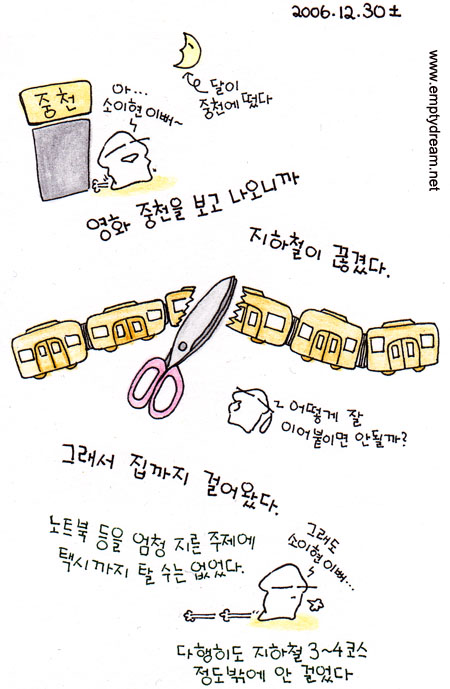 2006.12.30土
www.emptydream.net
중천
아...
소이현 이뻐~
달이
중천에 떴다
영화 중천을 보고 나오니까
지하철이 끊겼다.
어떻게 잘
이어붙이면 안될까?
그래서 집까지 걸어왔다.
노트북 등을 엄청 지른 주제에
택시까지 탈 수는 없었다.
그래도
소이현 이뻐...
다행히도 지하철 3~4코스
정도밖에 안 걸었다